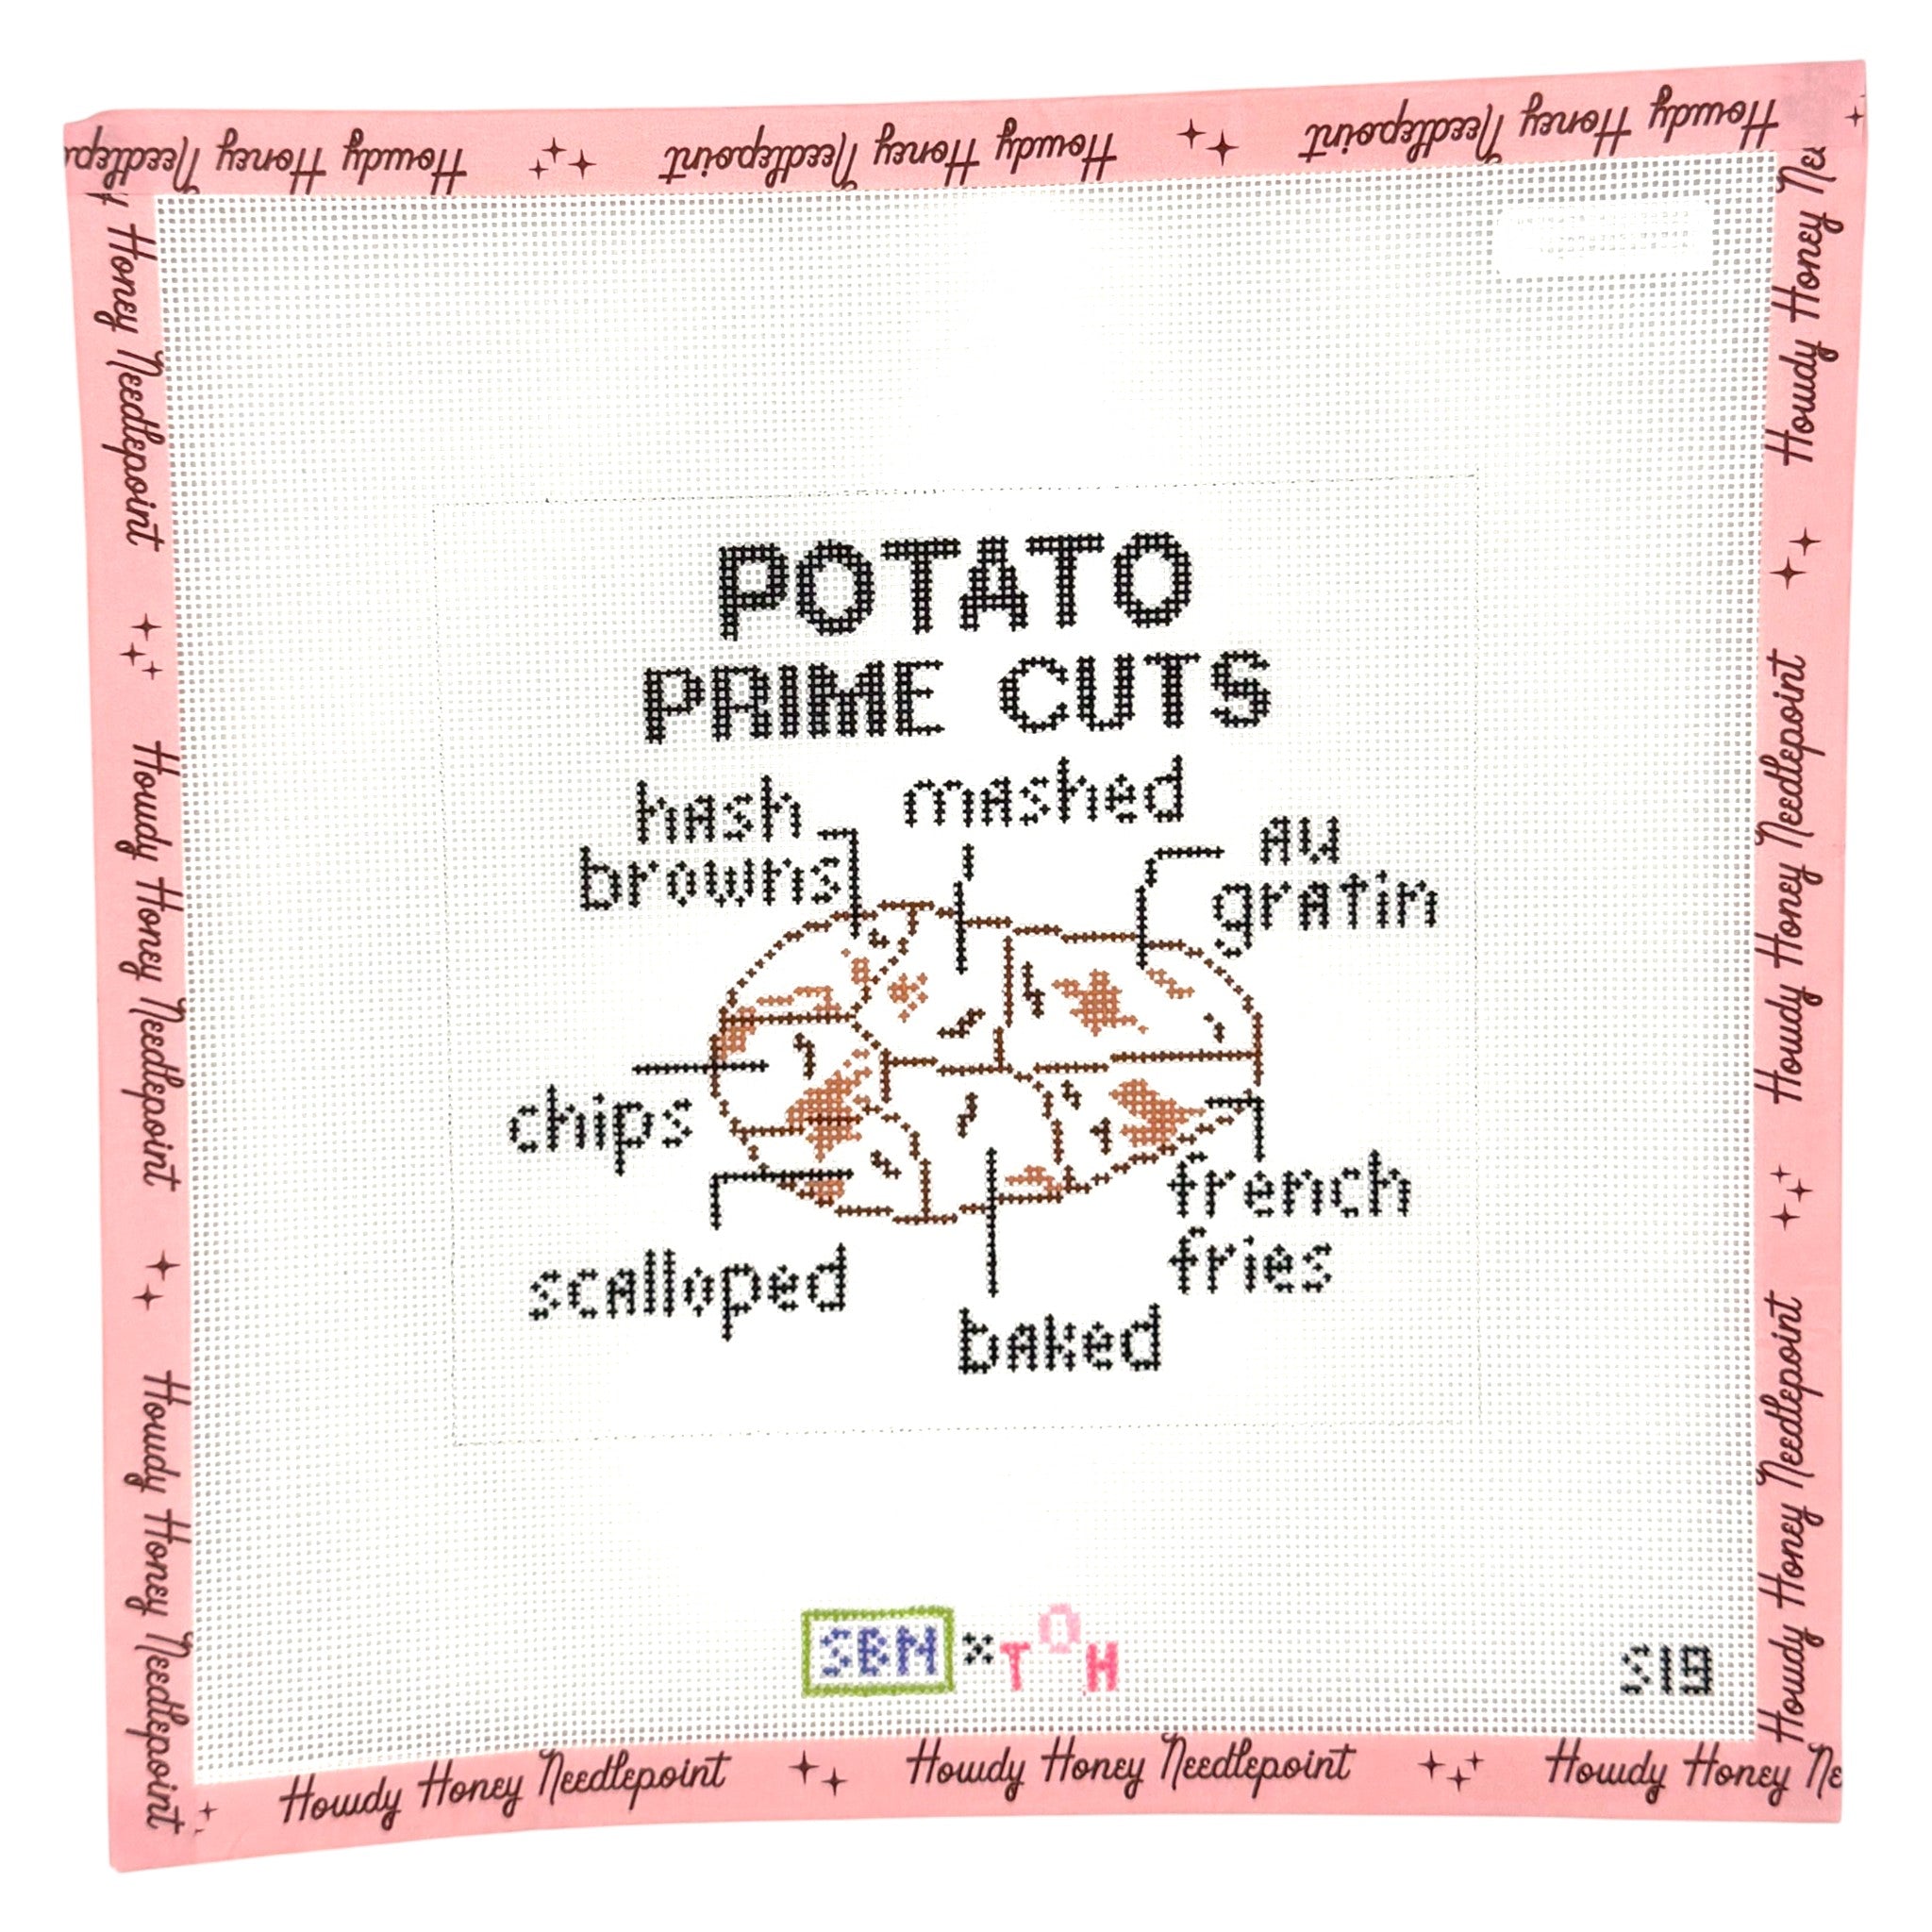 Needlepoint Honey Howdy
Howdy Honey Needlepoint
Howdy Honey Needlepoint
POTATO
PRIME CUTS
hash
browns
mashed
au
gratin
chips
scalloped
baked
french
fries
SBN x TOH
S19
Honey Needlepoint
Howdy Honey Needlepoint
Howdy Honey Needlepoint
Howdy Honey
Howdy Honey Needlepoint
Howdy Honey Needlepoint
Howdy Honey Needlepoint
Howdy Honey Needlepoint
Howdy Honey